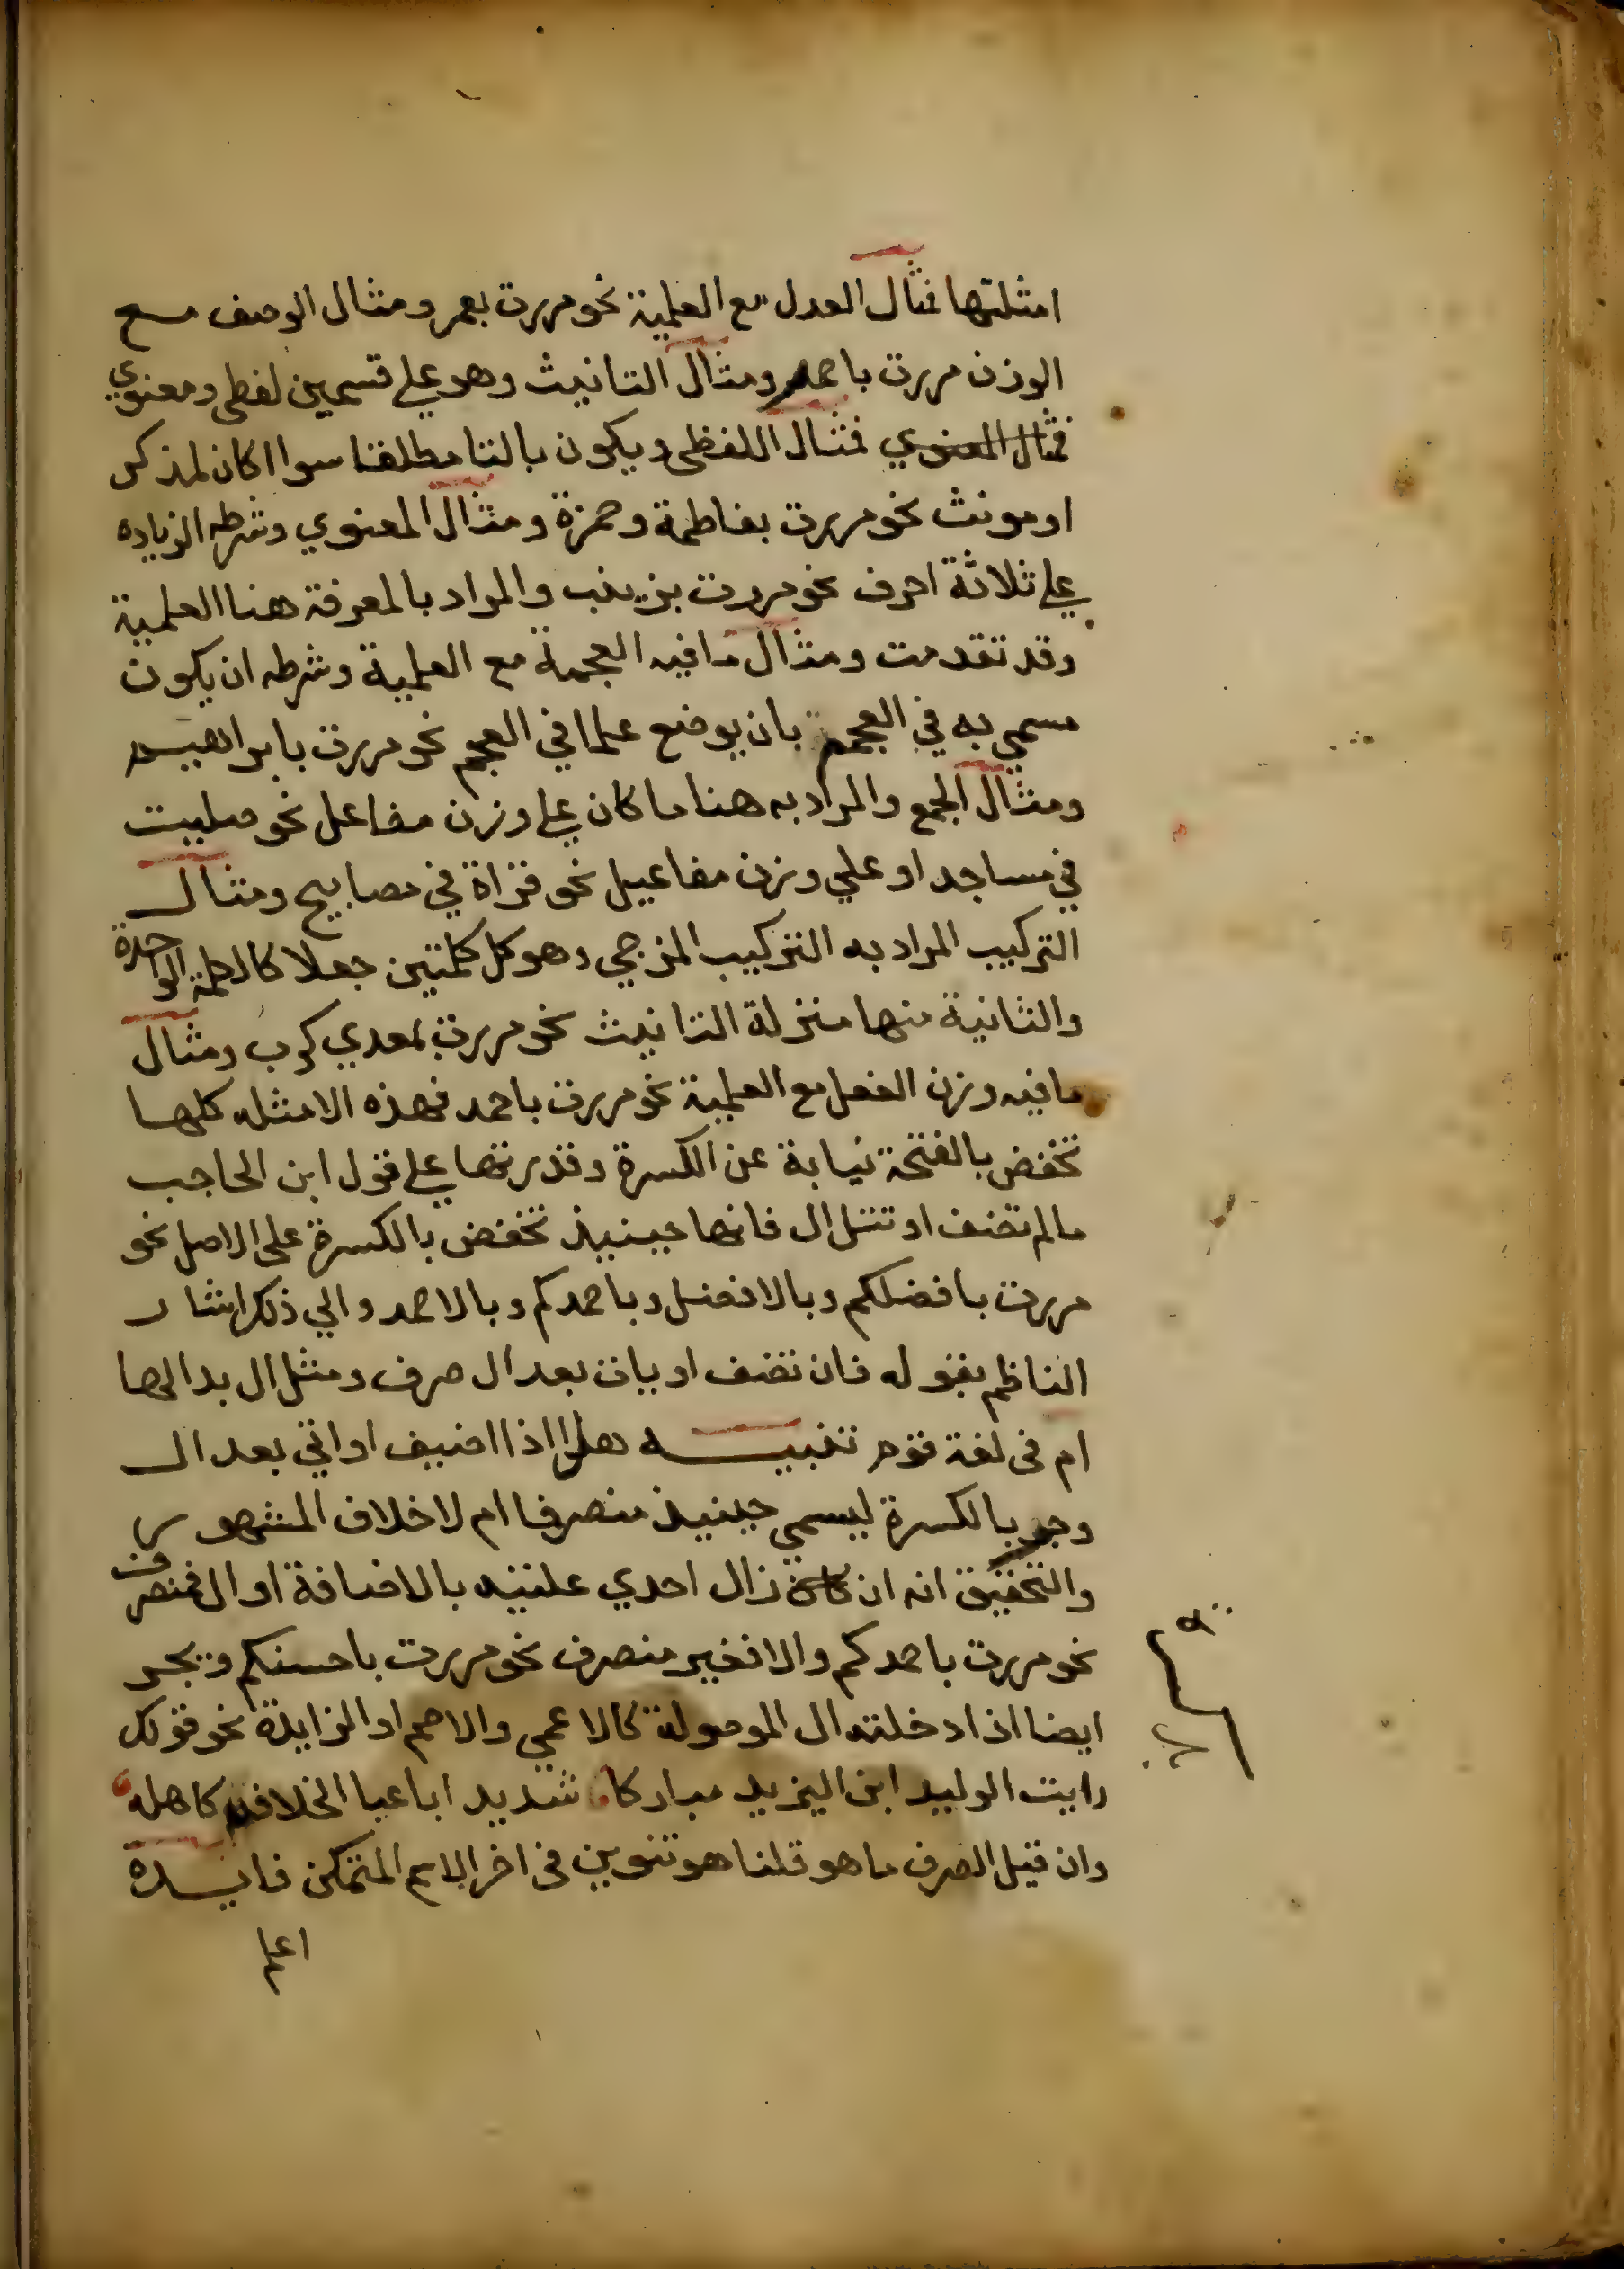 امثلتها فمثال العدل مع العلمية نحو مررت بعمر ومثال الوصف مع
الوزن مررت باحمر ومثال التانيث وهو علي قسمين لفظي ومعنوي
فمثال المعنوي فمثال اللفظي ويكون بالتا مطلقا سوا اكان لمذكر
او مونث نحو مررت بفاطمة وحمزة ومثال المعنوي وشرطه الزيادة
علي ثلاثة احرف نحو مررت بزينب والمراد بالمعرفة هنا العلمية
وقد تقدمت ومثال ما فيه العجمة مع العلمية وشرطه ان يكون
مسمي به في العجم بان يوضع علما في العجم نحو مررت بابراهيم
ومثال الجمع والمراد به هنا ما كان علي وزن مفاعل نحو صليت
في مساجد او علي وزن مفاعيل نحو قراة في مصابيح ومثال
التركيب المراد به التركيب المزجي وهو كل كلمتين جعلا كالكلمة الواحدة
والثانية منها منزلة التانيث نحو مررت بمعدي كرب ومثال
ما فيه وزن الفعل مع العلمية نحو مررت باحمد فهذه الامثلة كلها
تخفض بالفتحة نيابة عن الكسرة وقدرتها علي قول ابن الحاجب
ما لم تضف او تتل ال فانها حينيذ تخفض بالكسرة على الاصل نحو
مررت بافضلكم وبالافضل وباحمدكم وبالاحمد والي ذلك اشار
الناظم بقوله فان تضف او يات بعد ال صرف ومثل ال بدالها
ام في لغة قوم تنبيه هل اذا اضيف او اتي بعد ال
وجر بالكسرة ليسمي حينيذ منصرفا ام لا خلاف المشهور
والتحقيق انه ان كان زال احدي علتيه بالاضافة او ال فمنصرف
نحو مررت باحمدكم والا فغير منصرف نحو مررت باحسنكم ويجر
ايضا اذا دخلته ال الموصولة كالاعمي والاصم او الزايدة نحو قولك
رايت الوليد ابن اليزيد مباركا شديد اباعبا الخلافة كاهله
وان قيل الصرف ما هو قلنا هو تنوين في اخر الاسم المتمكن فايدة
اعلم